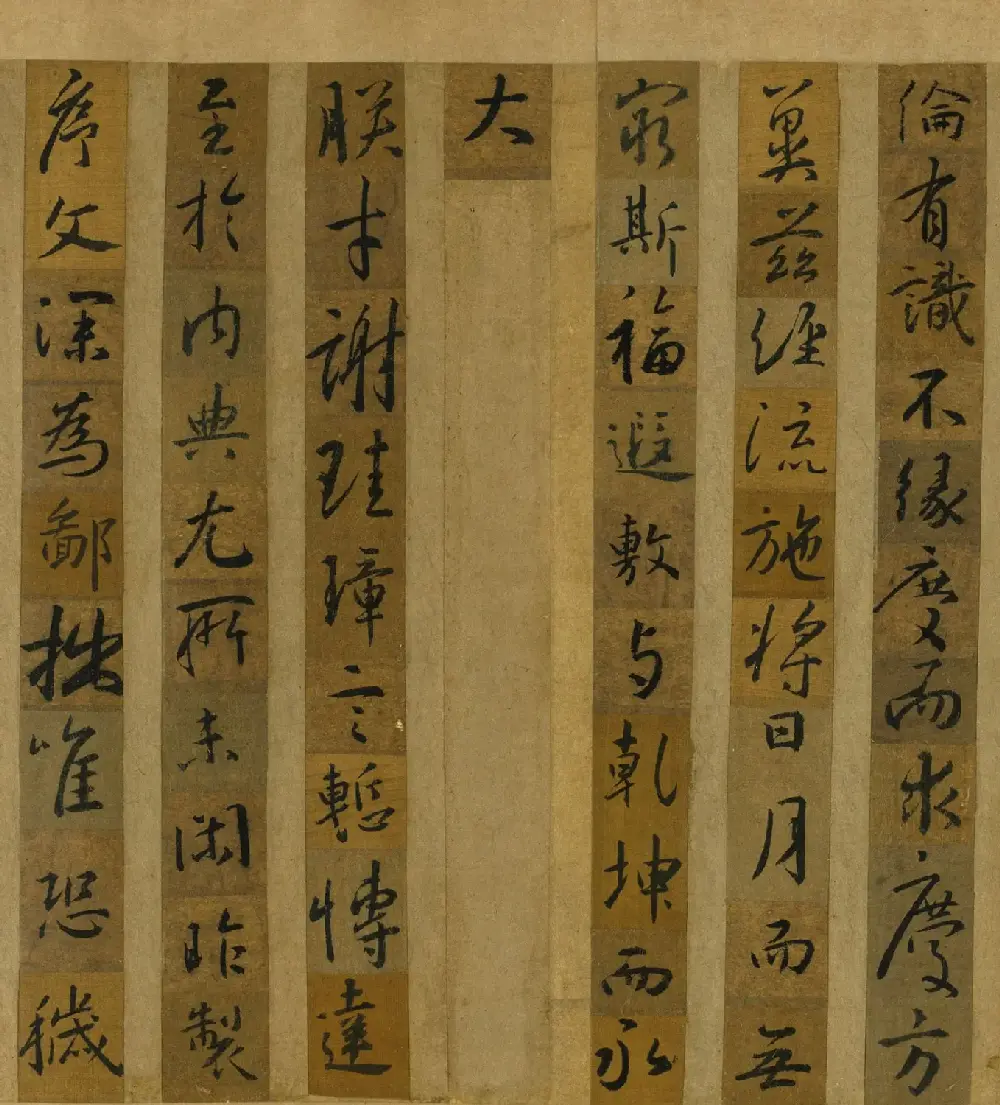 倫有識不緣慶而求慶方
冀茲經流施將日月而無
窮斯福遐敷与乾坤而永
大
朕才謝珪璋言慙博達
至於内典尤所未閑昨製
序文深為鄙拙唯恐穢